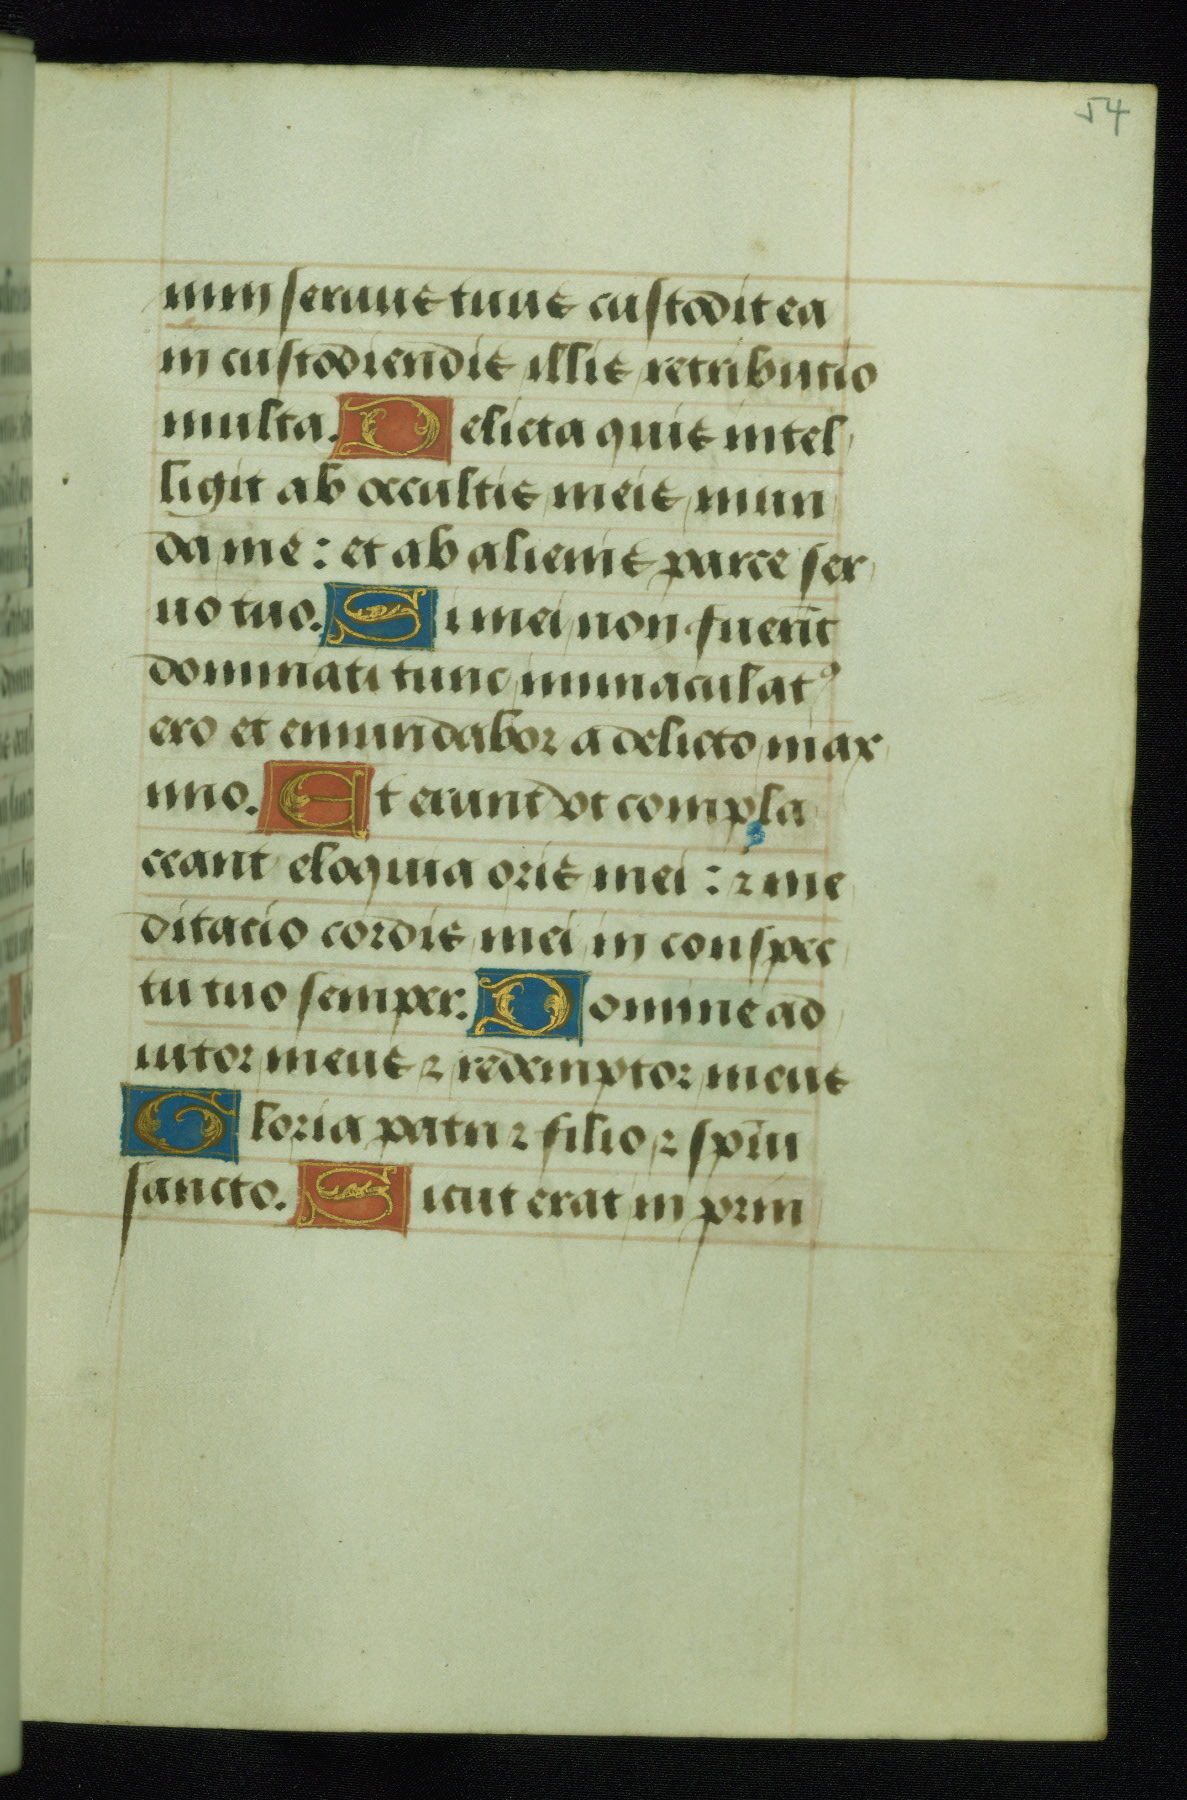 54
nim seruus tuus custodit ea
in custodiendis illis retributio
multa. Delicta quis intel
ligit ab occultis meis mun
da me: et ab alienis parce ser
uo tuo. Si mei non fuerīt
dominati tunc immaculatꝰ
ero et emundabor a delicto max
imo. Et erunt vt compla
ceant eloquia oris mei: ⁊ me
ditacio cordis mei in conspec
tu tuo semper. Domine ad
iutor meus ⁊ redemptor meus
Gloria patri ⁊ filio ⁊ spīui
sancto. Sicut erat in prin